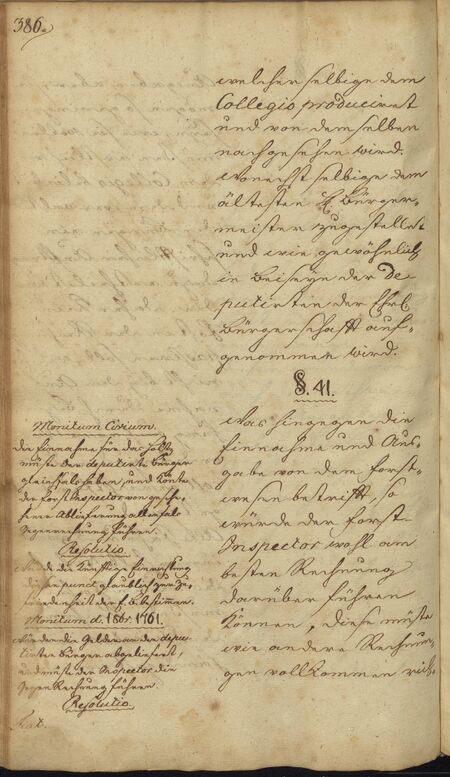 386.
welcher selbige dem
Collegio produciret
und von demselben
nachgesehen wird.
Wonechst selbige dem
ältesten H. Bürger,
meister zugestellet
und wie gewöhnlich
in beiseyn der De
putirten der Ehrl.
Bürgerschafft auf-
genommen wird.
§. 41.
Was hingegen die
Einnahme und Aus-
gabe von dem Forst-
wesen betrifft, so
würde der Forst-
Inspector wohl am
besten Rechnung
darüber führen
können, diese müste
wie andere Rechnun,
gen vollkommen rich-
Monitum Civium.
die Einnahme für das Holtz
müste der deputirte Bürger
gleichfals haben, und könte
der Forst Inspector von gesche,
hener Ablieferung allenfals
Gegenrechnung führen.
Resolutio.
Wird die künfftige Einrichtung
diesen punct glaublich zur Zu,
friedenheit der E. B. bestimmen.
Monitum d. 1761.
Würden die Gelder an den depu,
tirten Bürger abgeliefert,
und müste der Inspector die
Gegen Rechnung führen.
Resolutio.
Fiat.